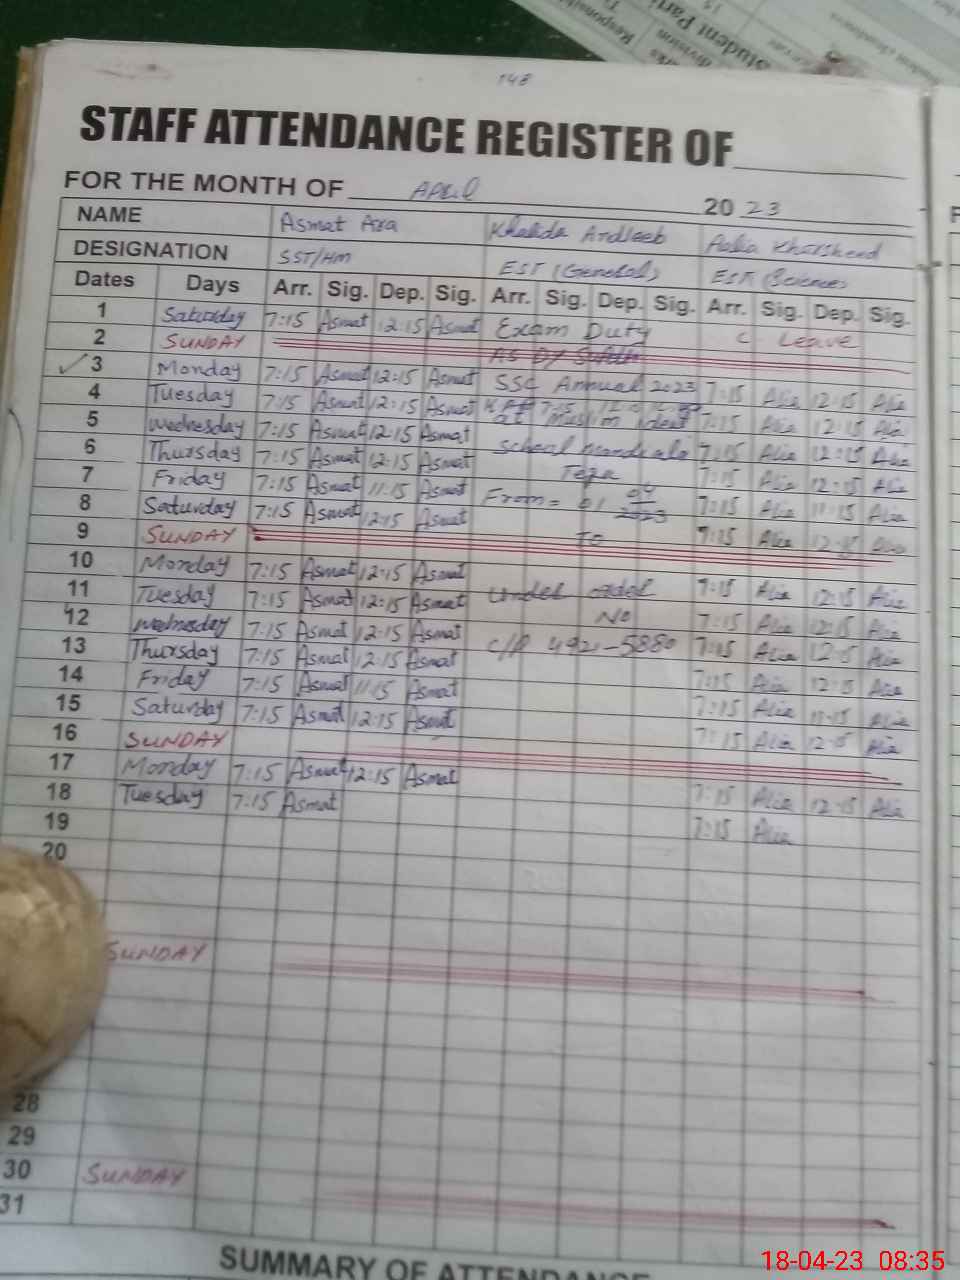 148
STAFF ATTENDANCE REGISTER OF
FOR THE MONTH OF APRIL 2023
NAME Asmat Ara Khalida Andleeb Aalia Khursheed
DESIGNATION SST/HM EST (General) EST (Science)
Dates Days Arr. Sig. Dep. Sig. Arr. Sig. Dep. Sig. Arr. Sig. Dep. Sig.
1 Saturday 7:15 Asmat 12:15 Asmat Exam Duty C Leave
2 SUNDAY
3 Monday 7:15 Asmat 12:15 Asmat SSC Annual 2023 7:15 Alia 12:15 Alia
4 Tuesday 7:15 Asmat 12:15 Asmat at Muslim 7:15 Alia 12:15 Alia
5 Wednesday 7:15 Asmat 12:15 Asmat School 7:15 Alia 12:15 Alia
6 Thursday 7:15 Asmat 12:15 Asmat 7:15 Alia 12:15 Alia
7 Friday 7:15 Asmat 11:15 Asmat From = 01 04 2023 7:15 Alia 11:15 Alia
8 Saturday 7:15 Asmat 12:15 Asmat TO 7:15 Alia 12:15 Alia
9 SUNDAY
10 Monday 7:15 Asmat 12:15 Asmat 7:15 Alia 12:15 Alia
11 Tuesday 7:15 Asmat 12:15 Asmat No 7:15 Alia 12:15 Alia
12 Wednesday 7:15 Asmat 12:15 Asmat 492-5880 7:15 Alia 12:15 Alia
13 Thursday 7:15 Asmat 12:15 Asmat 7:15 Alia 12:15 Alia
14 Friday 7:15 Asmat 11:15 Asmat 7:15 Alia 11:15 Alia
15 Saturday 7:15 Asmat 12:15 Asmat 7:15 Alia 12:15 Alia
16 SUNDAY
17 Monday 7:15 Asmat 12:15 Asmat 7:15 Alia 12:15 Alia
18 Tuesday 7:15 Asmat 7:15 Alia
19
20
SUNDAY
28
29
30 SUNDAY
31
SUMMARY OF ATTENDANCE
18-04-23 08:35